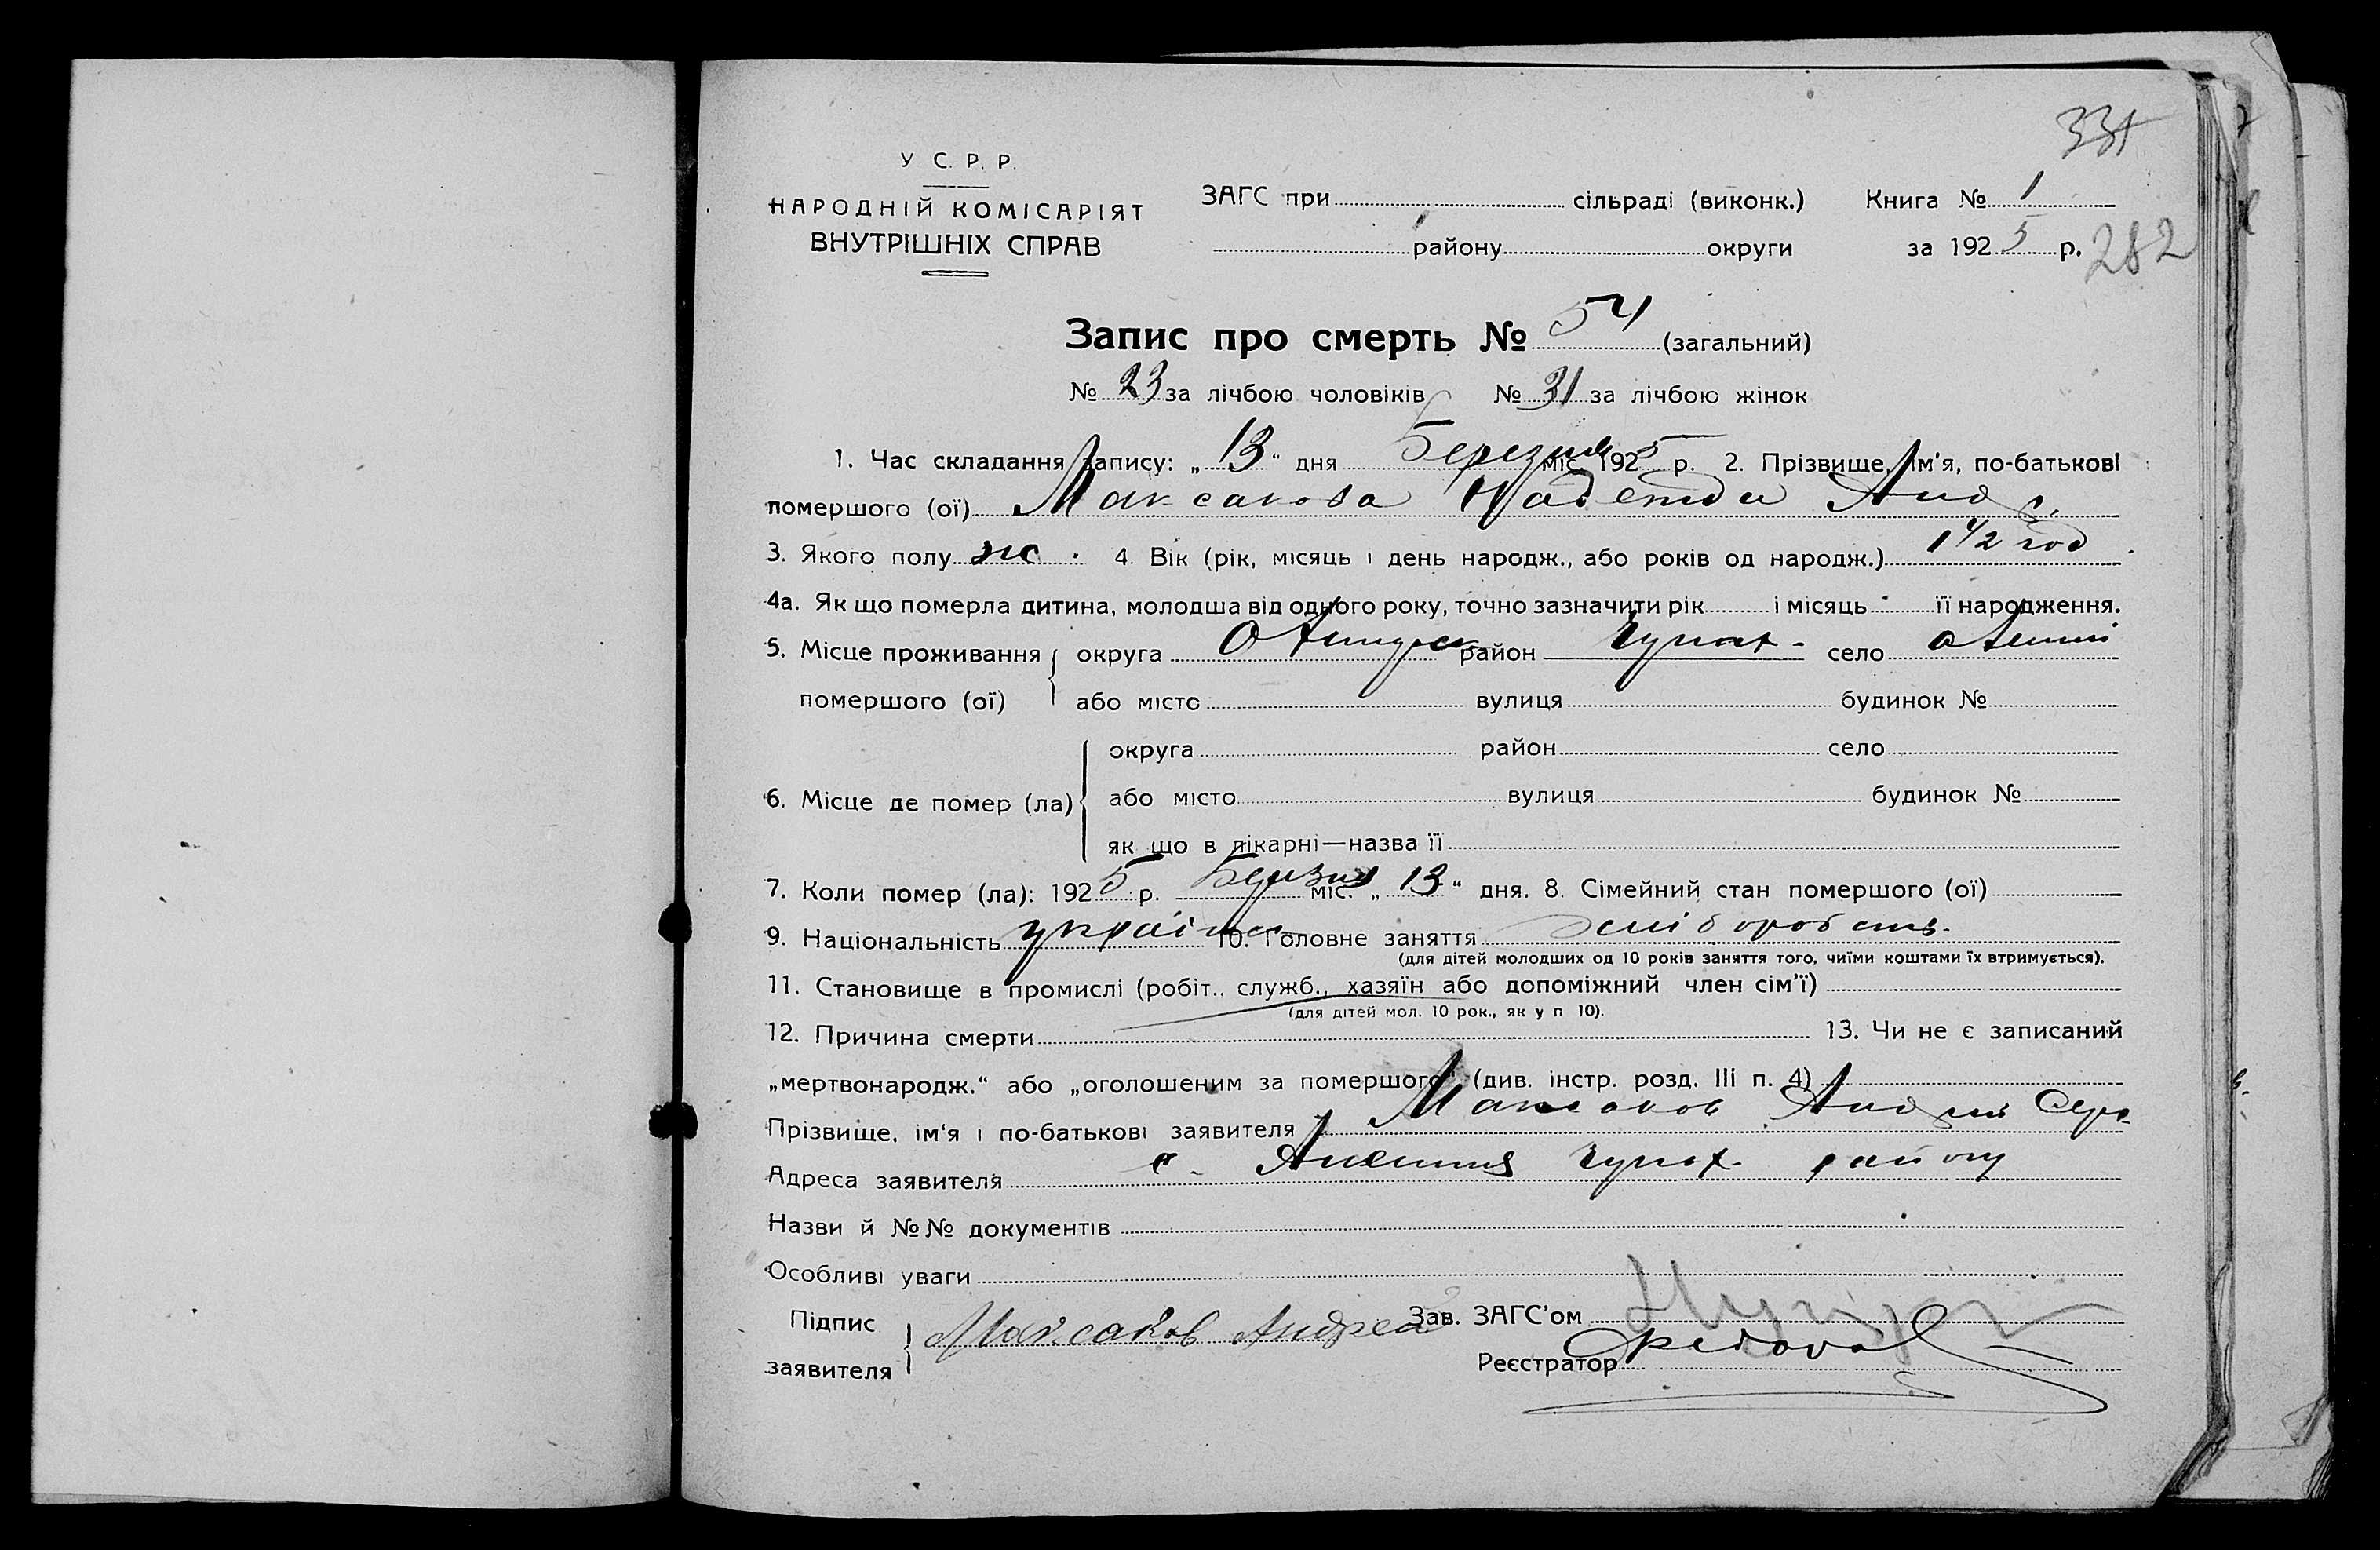 331
У С. Р. Р.
НАРОДНІЙ КОМІСАРІЯТ
ВНУТРІШНІХ СПРАВ
ЗАГС при сільраді (виконк.) Книга № 1
району округи за 1925 р. 282
Запис про смерть № 54 (загальний)
№ 23 за лічбою чоловіків № 31 за лічбою жінок
1. Час складання запису: „13“ дня Березня міс. 1925 р. 2. Прізвище, ім'я, по-батькові
помершого (ої) Максакова Надежда Анд
3. Якого полу ж. 4. Вік (рік, місяць і день народж., або років од народж.) 1 1/2 год
4а. Як що померла дитина, молодша від одного року, точно зазначити рік і місяць її народження.
5. Місце проживання округа район село
помершого (ої) або місто вулиця будинок №
округа район село
6. Місце де помер (ла) або місто вулиця будинок №
як що в лікарні—назва її
7. Коли помер (ла): 1925 р. Березня міс. „13“ дня. 8. Сімейний стан помершого (ої)
9. Національність 10. Головне заняття
(для дітей молодших од 10 років заняття того, чиїми коштами їх втримується).
11. Становище в промислі (робіт., служб., хазяїн або допоміжний член сім'ї)
(для дітей мол. 10 рок., як у п 10).
12. Причина смерти 13. Чи не є записаний
„мертвонародж.“ або „оголошеним за помершого“ (див. інстр. розд. III п. 4)
Прізвище, ім'я і по-батькові заявителя Максаков
Адреса заявителя с. району
Назви й №№ документів
Особливі уваги
Підпис Максаков Андрей Зав. ЗАГС'ом
заявителя Реєстратор